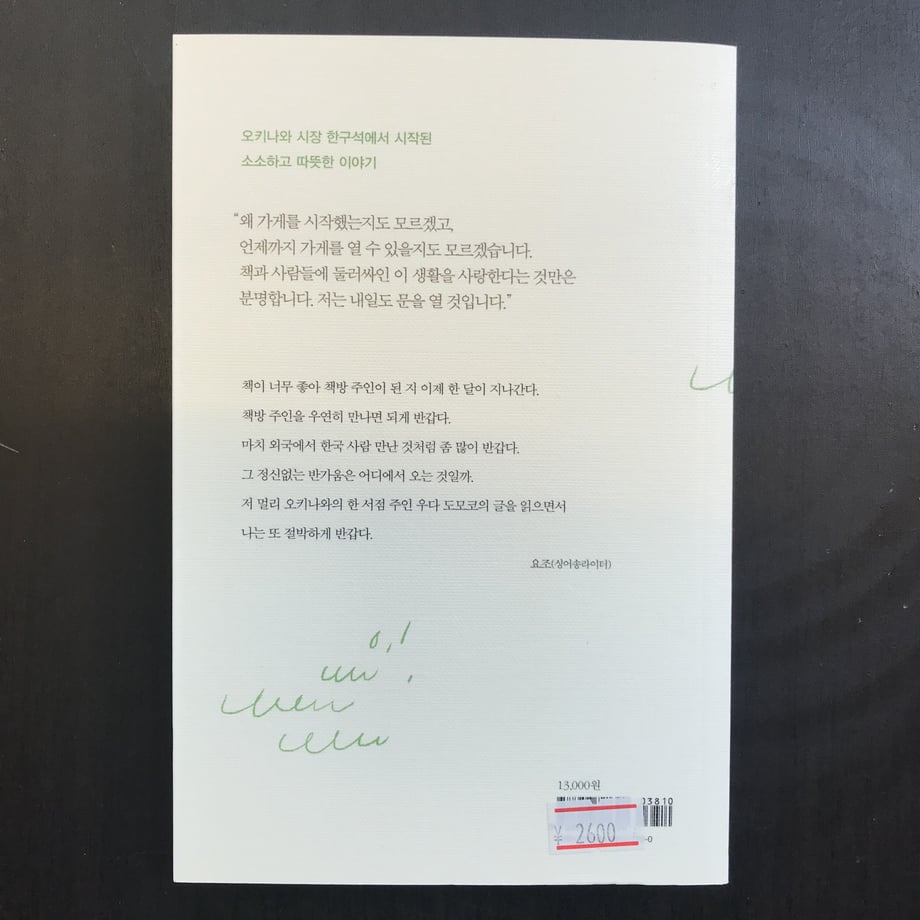 오키나와 시장 한구석에서 시작된
소소하고 따뜻한 이야기
“왜 가게를 시작했는지도 모르겠고,
언제까지 가게를 열 수 있을지도 모르겠습니다.
책과 사람들에 둘러싸인 이 생활을 사랑한다는 것만은
분명합니다. 저는 내일도 문을 열 것입니다.”
책이 너무 좋아 책방 주인이 된 지 이제 한 달이 지나간다.
책방 주인을 우연히 만나면 되게 반갑다.
마치 외국에서 한국 사람 만난 것처럼 좀 많이 반갑다.
그 정신없는 반가움은 어디에서 오는 것일까.
저 멀리 오키나와의 한 서점 주인 우다 도모코의 글을 읽으면서
나는 또 절박하게 반갑다.
요조(싱어송라이터)
13,000원
03810
¥ 2600
-0